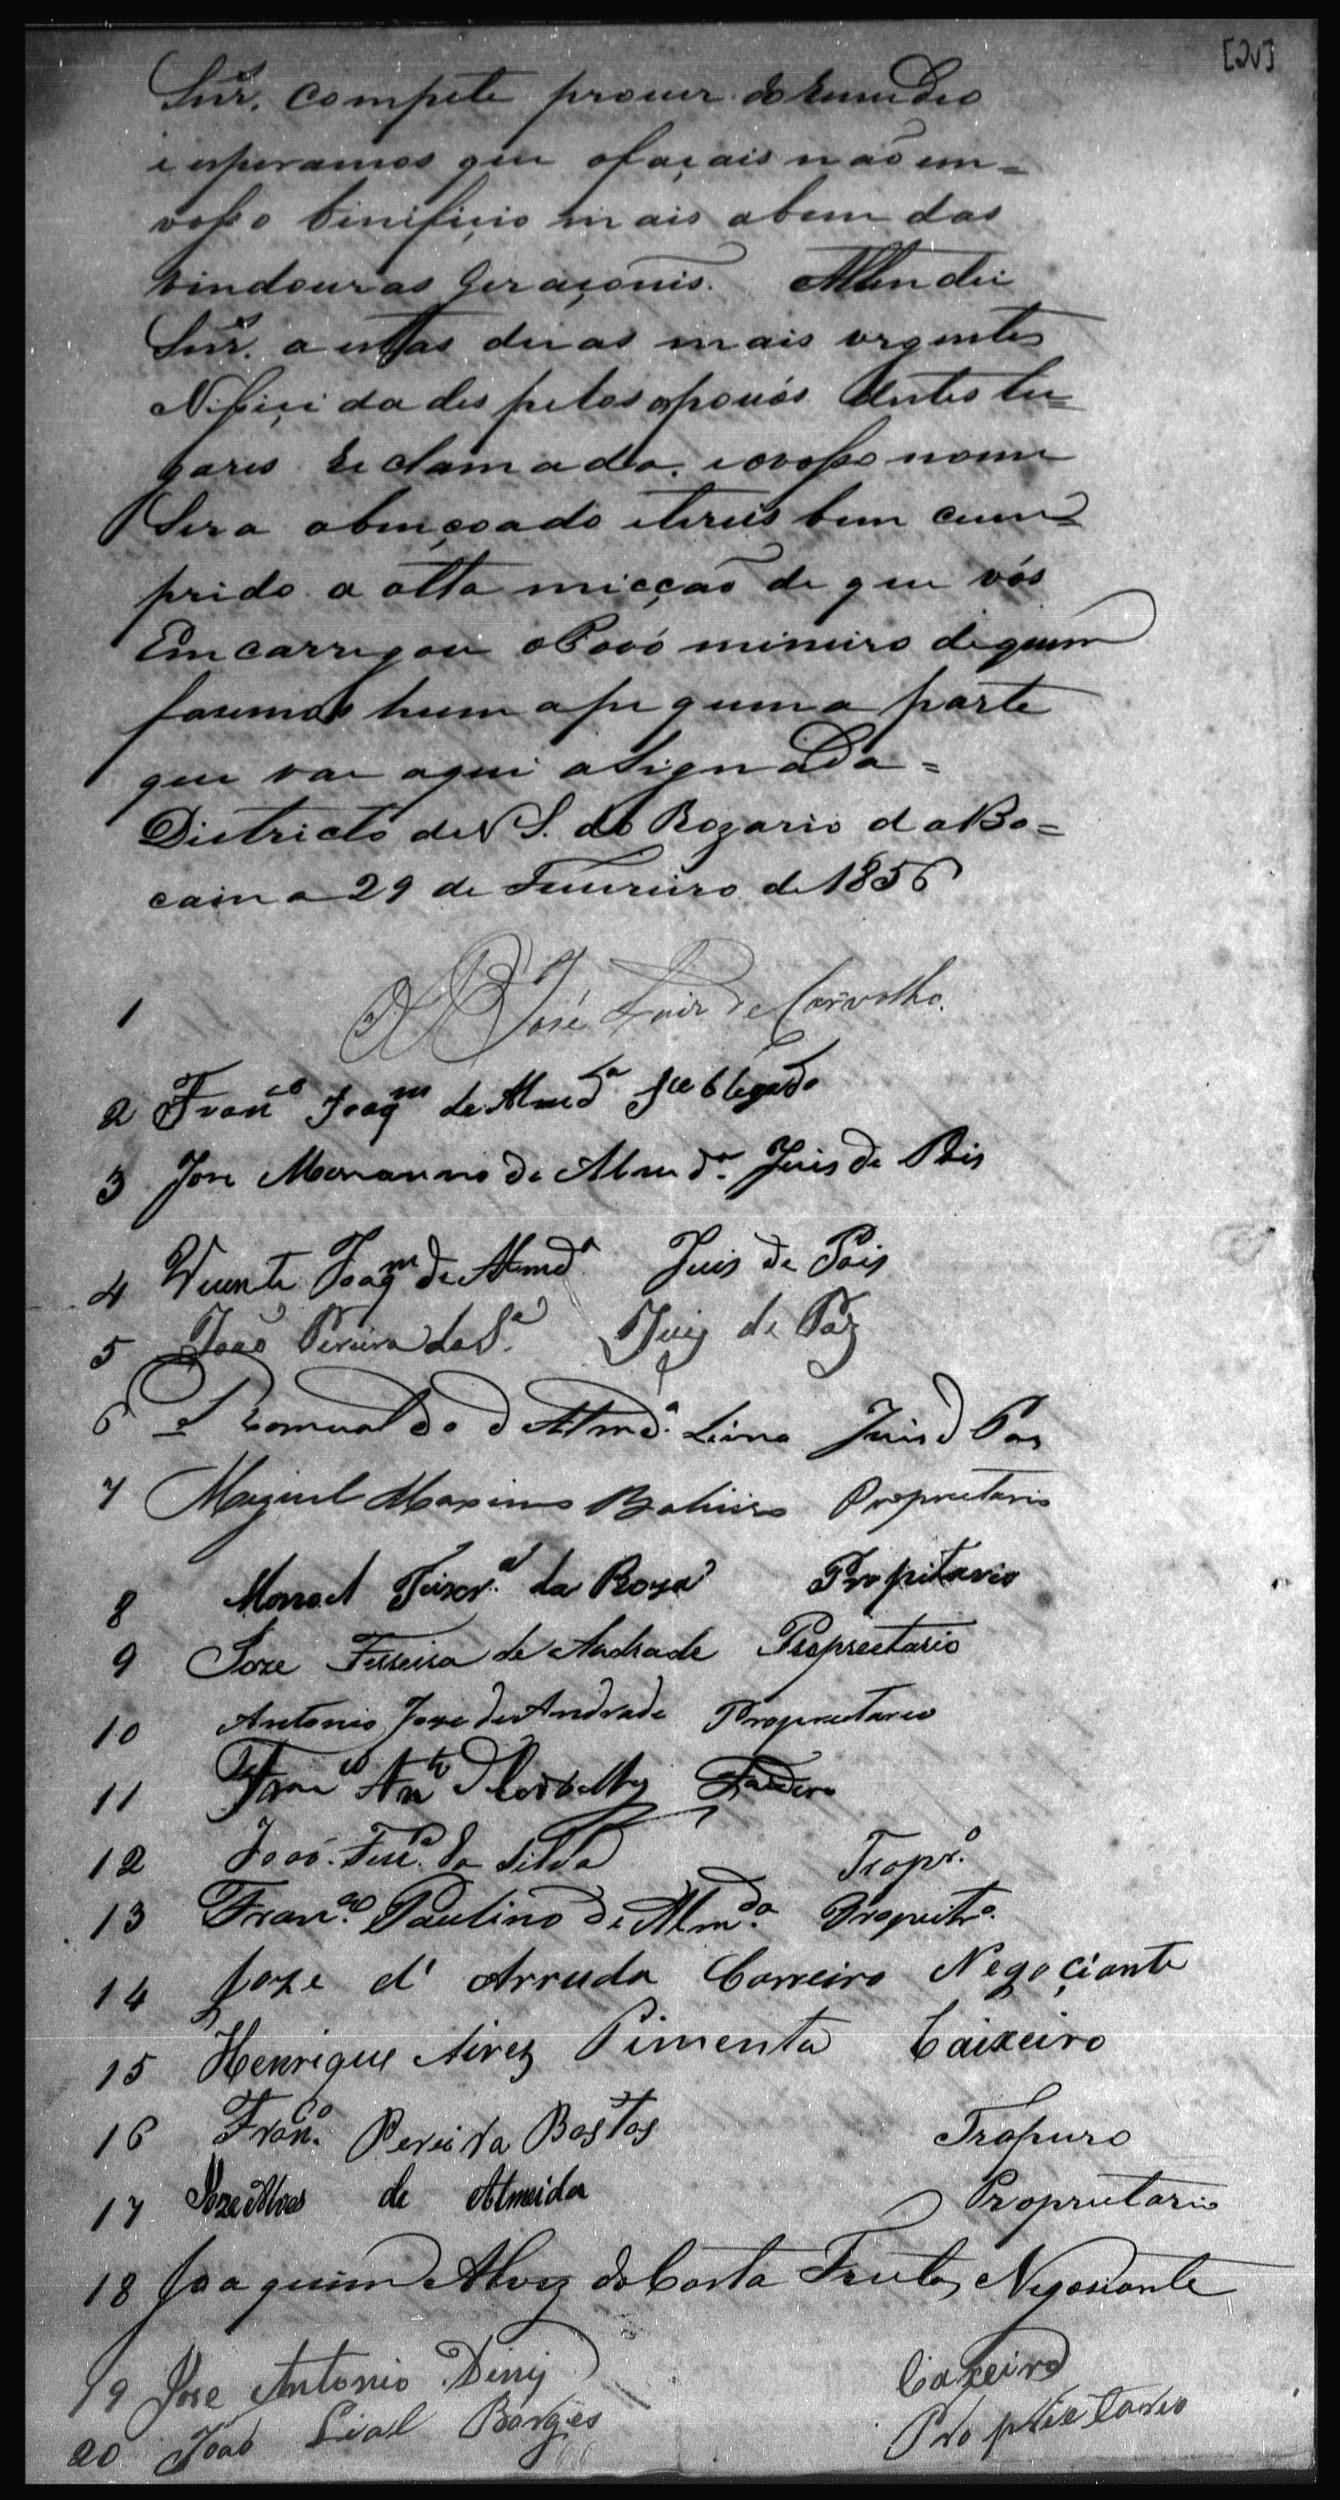 [2v]
Snr. compete prover do remedio
e esperamos que ofaçais não em=
vosso binifiçio mais abem das
vindouras Geraçonis. Attendei
Snr. a estas duas mais urgentes
Nisiçidades pelos povos destes lu=
gares reclamada. e o vosso nome
Sera abençoado e tereis bem cum=
prido a alta micção de que vós
Emcarregou o Povo mineiro de quem
fasemos huma piquena parte
que vae aqui asignada=
Districto de N. S. do Rozario da Bo=
caina 29 de Fevereiro de 1856
1 José Luiz de Carvalho.
2 Franco Joaqm de Almda Sublegado
3 Jose Marianno de Almda. Juis de Pais
4 Vicente Joaqm de Almda Juis de Pais
5 João Pereira da Sa. Juiz de Paz
6 Romualdo d Almda. Lima Juis d Pas
7 Miguel Maximo Bahiero Proprietario
8 Manoel Teixra. da Roza Propitario
9 Joze Ferreira de Andrade Proprietario
10 Antonio Joze de Andrade Proprietareo
11 Franco Anto
12 João Ferra. da Silva Tropro.
13 Franco. Paulino de Almda. Propietro.
14 Joze d' Arruda Carreiro Negoçiante
15 Henrique Airez Pimenta Caixeiro
16 Franco. Pereira Bastos Tropero
17 Joze Alves de Almeida Proprietario
18 Joaquim Alvez da Costa Negoсiante
19 Jose Antonio Diniz Caxeiro
20 João Lial Borges Proprietario